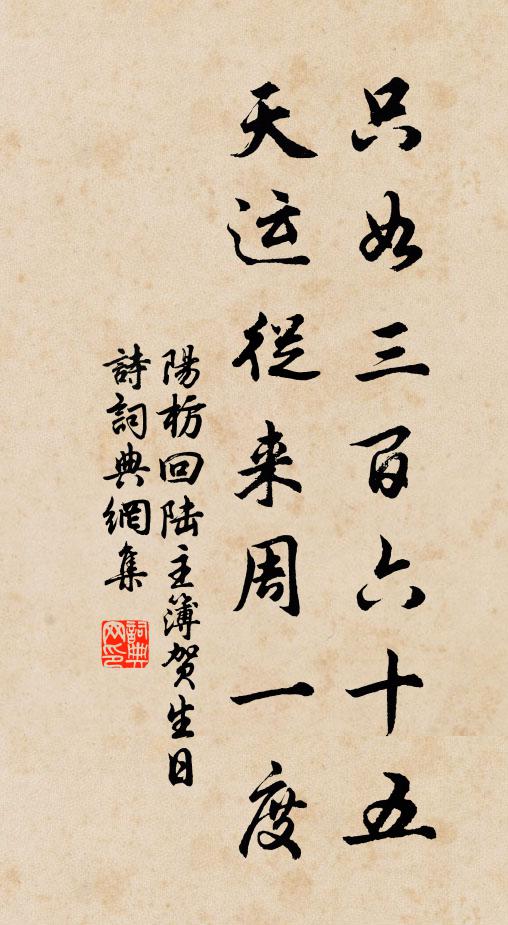 只如三百六十五
天运從来周一度
陽枋回陆主簿贺生日
詩詞典網集
詞典网印